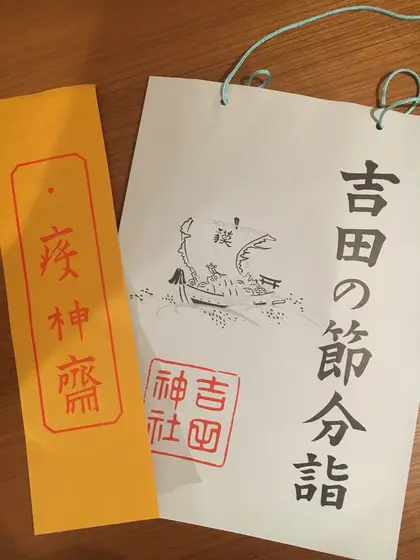 吉田の節分詣
獏
吉田
神社
疫神齋